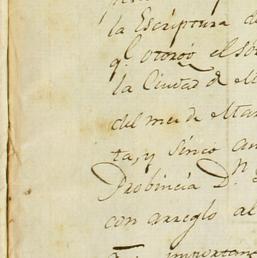 la Escriptura de
q.^e otorgó el so
la Ciudad de M
del mes de Mar
ta, y sinco an
Probincia D.^n
con arreglo al
importan